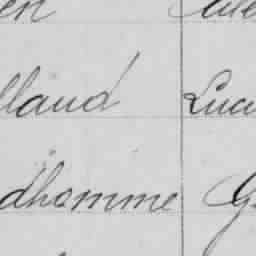 en
lland Luc
dhomme G